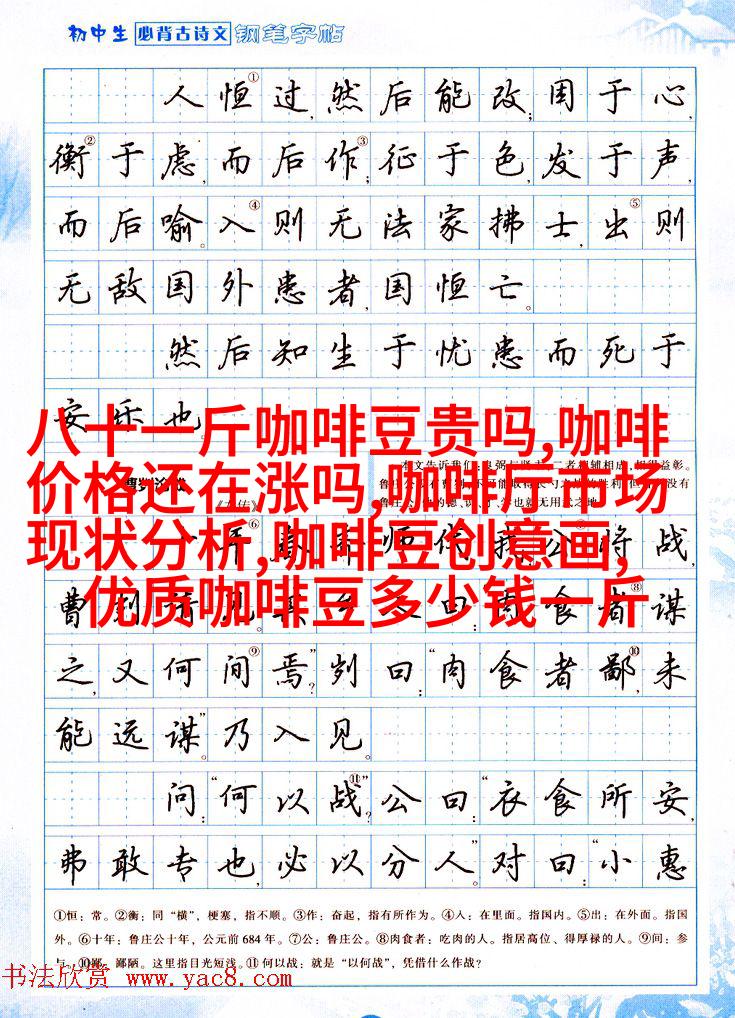 初中生 必背古诗文 钢笔字帖
人恒①过,然后能改;困于心,
衡②于虑,而后作③;征于色,发于声,
而后喻。入④则无法家拂士,出⑤则
无敌国外患者,国恒亡。
然后知生于忧患而死于
安乐也。
八十一斤咖啡豆贵吗,咖啡
价格还在涨吗,咖啡豆市场
现状分析,咖啡豆创意画,
优质咖啡豆多少钱一斤
二者相辅相成,相得益彰。
⑥ 师伐我 公将战,
曹刿 曰:“肉食者⑧谋
之,又何间⑨焉?”刿曰:“肉食者鄙⑩,未
能远谋。”乃入见。
问:“何以战⑪?”公曰:“衣食所安,
弗敢专也,必以分人。”对曰:“小惠
①恒:常。②衡:同“横”,梗塞,指不顺。③作:奋起,指有所作为。④入:在里面。指国内。⑤出:在外面。指国
外。⑥十年:鲁庄公十年,公元前684年。⑦公:鲁庄公。⑧肉食者:吃肉的人。指居高位、得厚禄的人。⑨间:参
与。⑩鄙:鄙陋。这里指目光短浅。⑪何以战:就是“以何战”,凭借什么作战?
书法欣赏 www.yac8.com